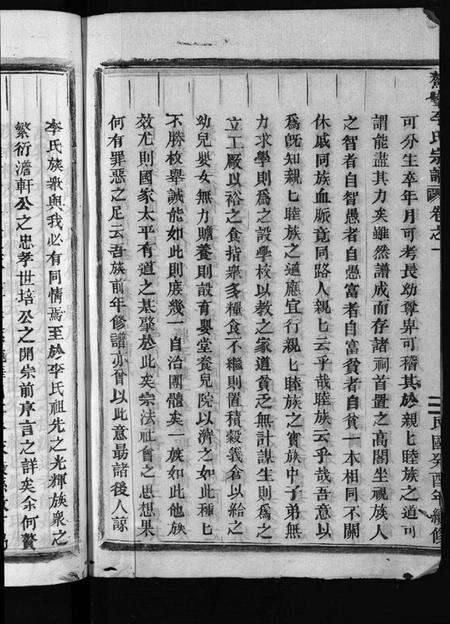 李氏宗譜 卷之一
民國癸酉年續修
可分生卒年月可考長幼尊卑可稽其於親親睦族之道可
謂能盡其力矣雖然譜成而存諸祠首置之高閣坐視族人
之智者自智愚者自愚富者自富貧者自貧一本相同不關
休戚同族血脈竟同路人親親云乎哉睦族云乎哉吾意以
爲旣知親親睦族之道應宜行親親睦族之實族中子弟無
力求學則爲之設學校以教之家道貧乏無計謀生則爲之
立工廠以裕之食指衆多糧食不繼則置積穀義倉以給之
幼兒嬰女無力贍養則設育嬰堂養兒院以濟之如此種種
不勝枚舉誠能如此則庶幾一自治團體矣一族如此他族
效尤則國家太平有道之基肇於此矣宗法社會之思想果
何有罪惡之足云吾族前年修譜亦曾以此意最諸後人諒
李氏族衆與我必有同情焉至於李氏祖先之光輝族衆之
繁衍澹軒公之忠孝世培公之開宗前序言之詳矣余何贅